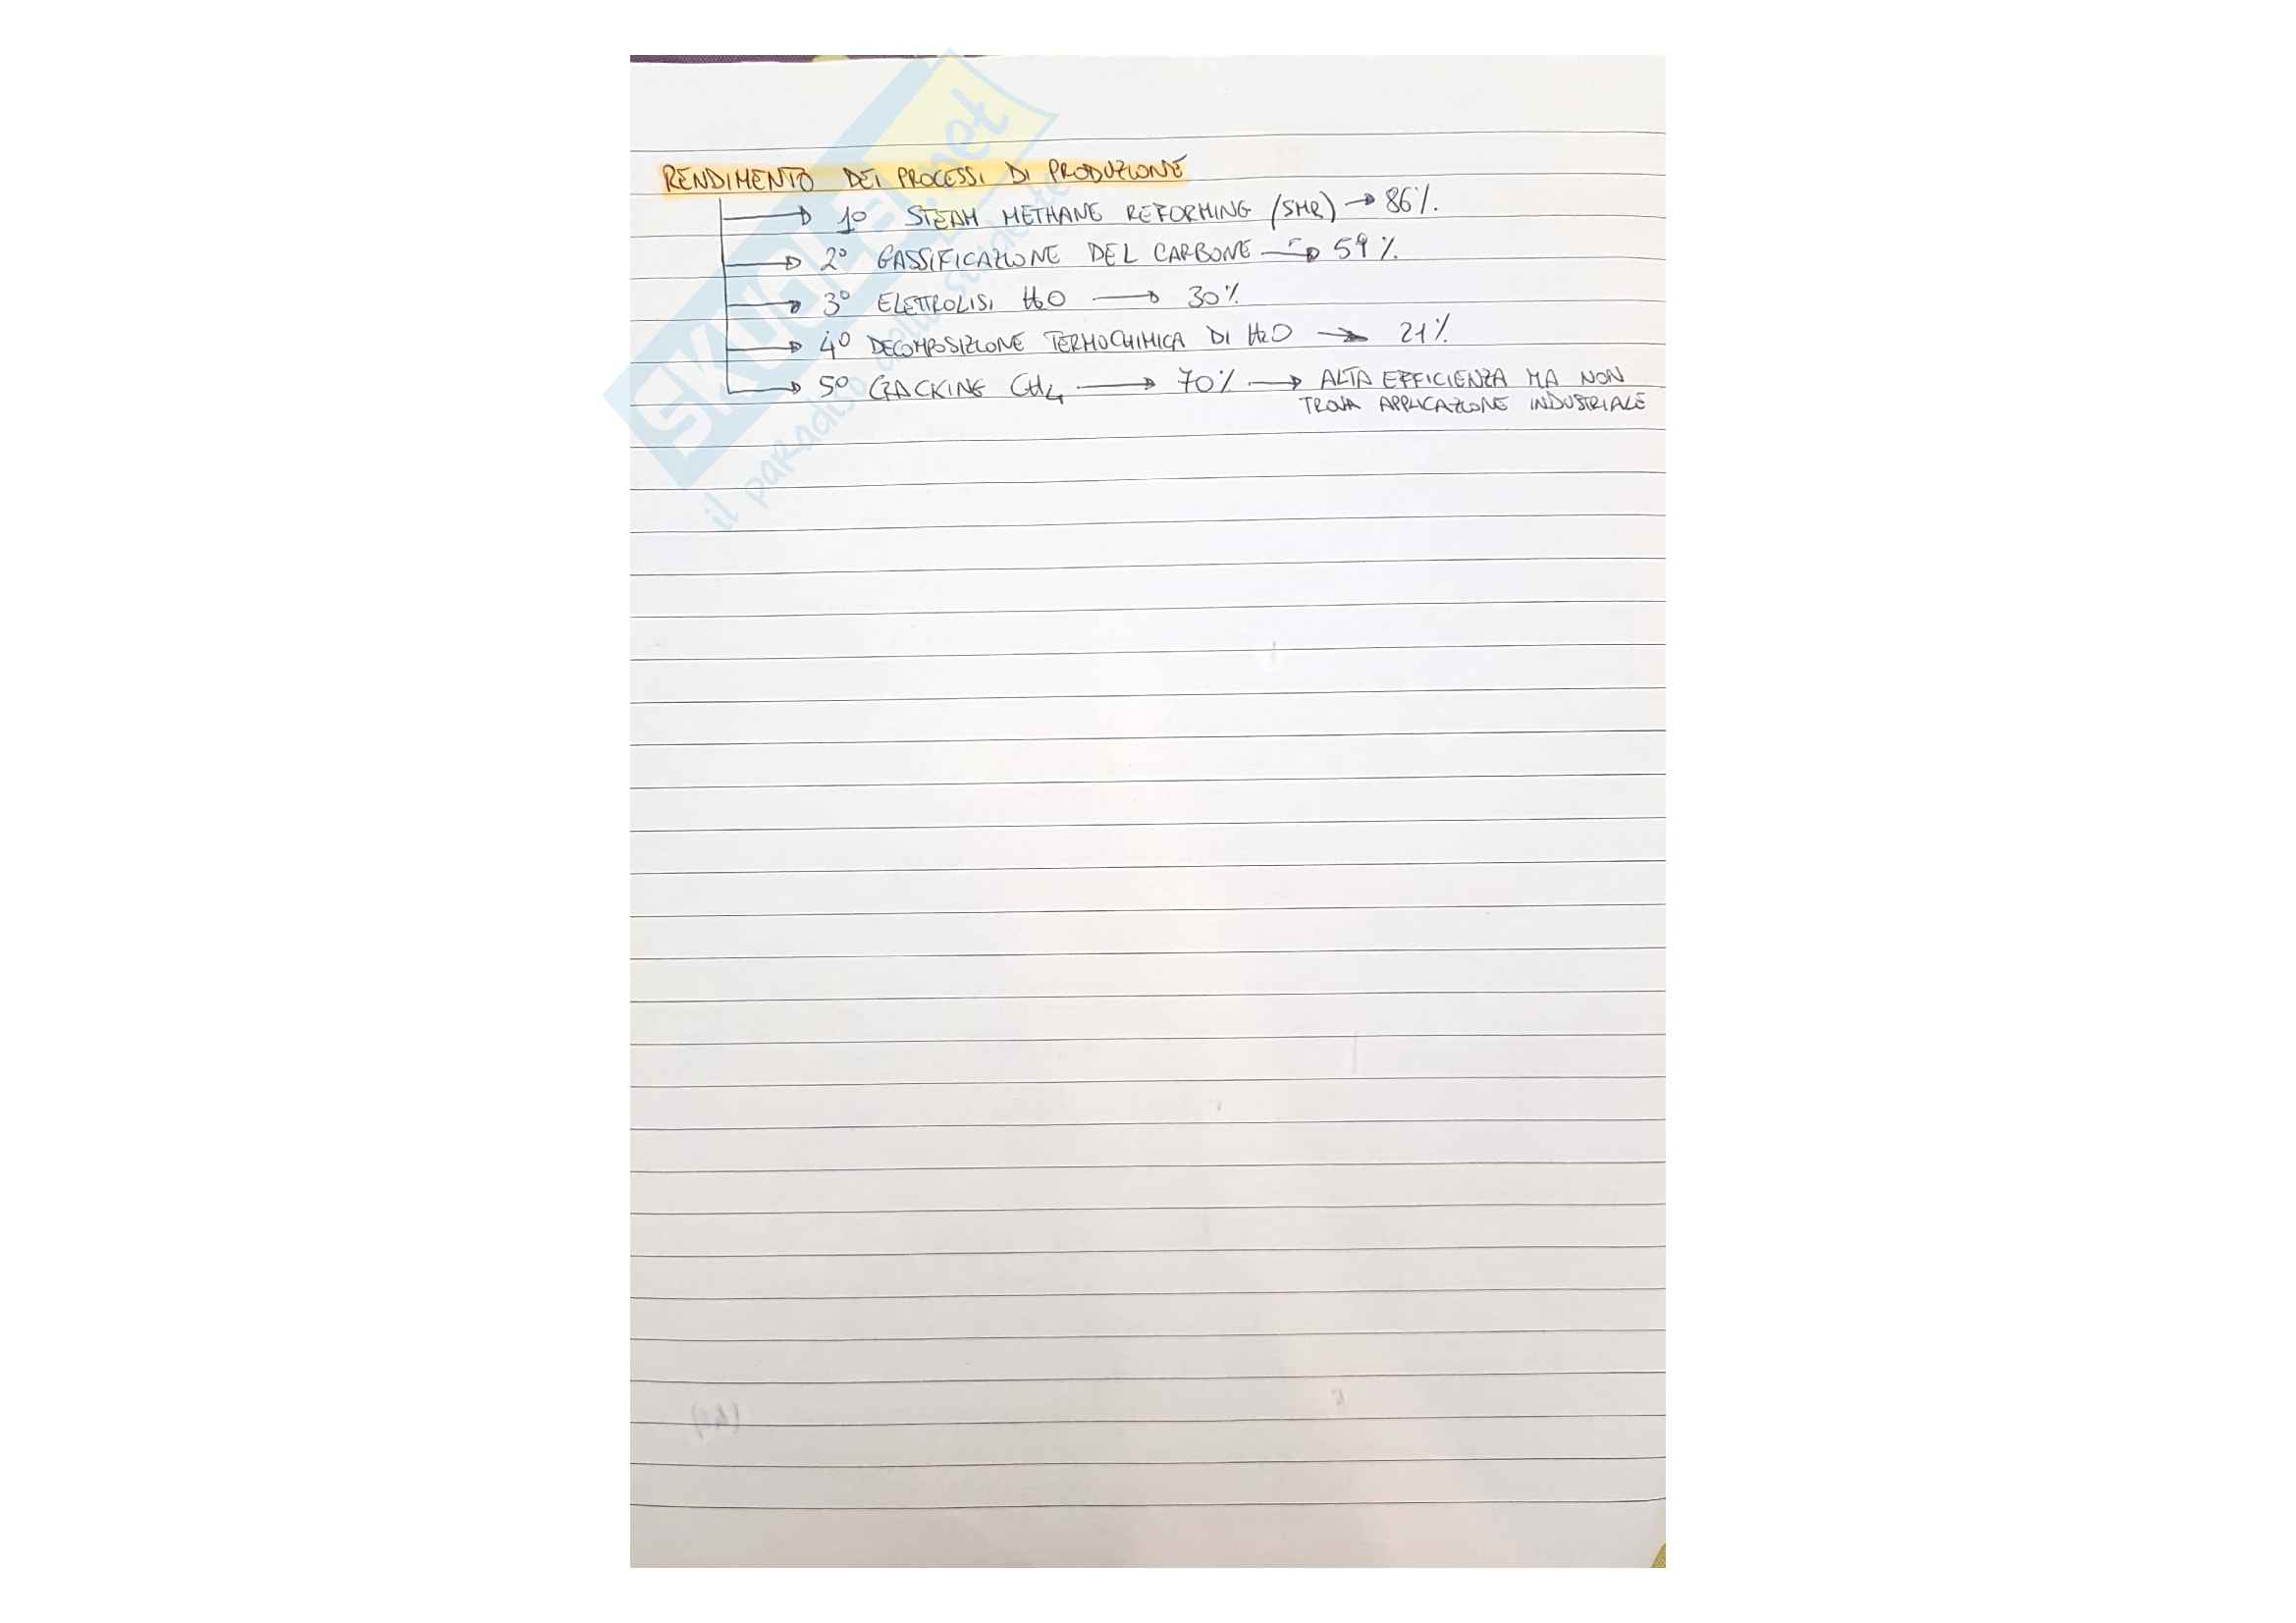 RENDIMENTO DEI PROCESSI DI PRODUZIONE
1° STEAM METHANE REFORMING (SMR) → 86%.
2° GASSIFICAZIONE DEL CARBONE → 59%.
3° ELETTROLISI H2O → 30%
4° DECOMPOSIZIONE TERMOCHIMICA DI H2O → 21%
5° CRACKING CH4 → 70% → ALTA EFFICIENZA MA NON
TROVA APPLICAZIONE INDUSTRIALE
SKUOLA.net
il paradiso dello studente